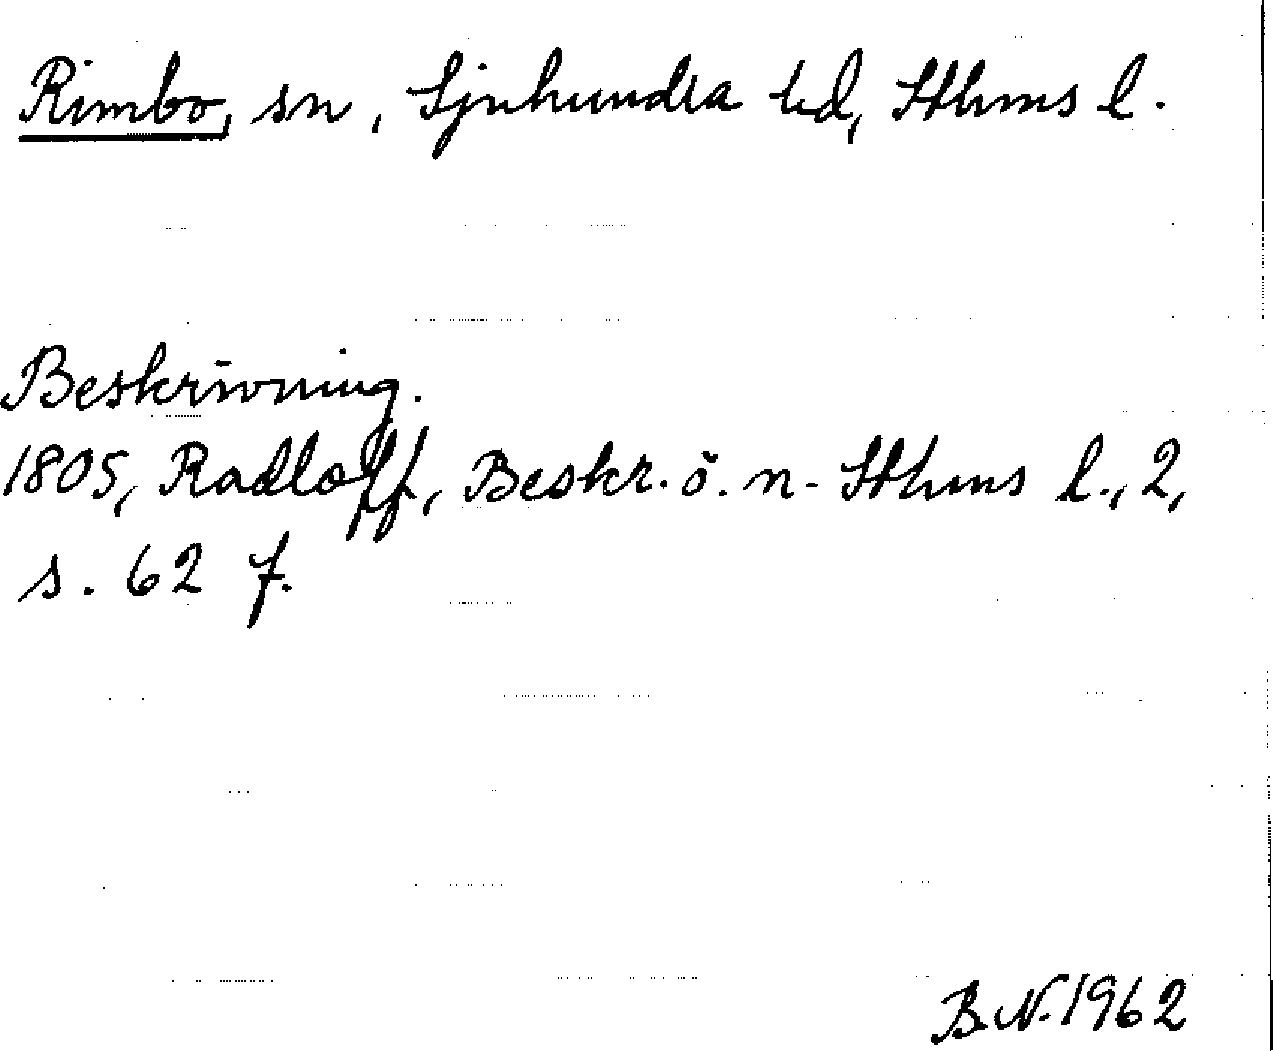 Rimbo, sn, Sjuhundra hd, Sthms l.
Beskrivning.
1805, Radloff, Beskr. ö. n. Sthms l., 2,
s. 62 f.
B.N. 1962